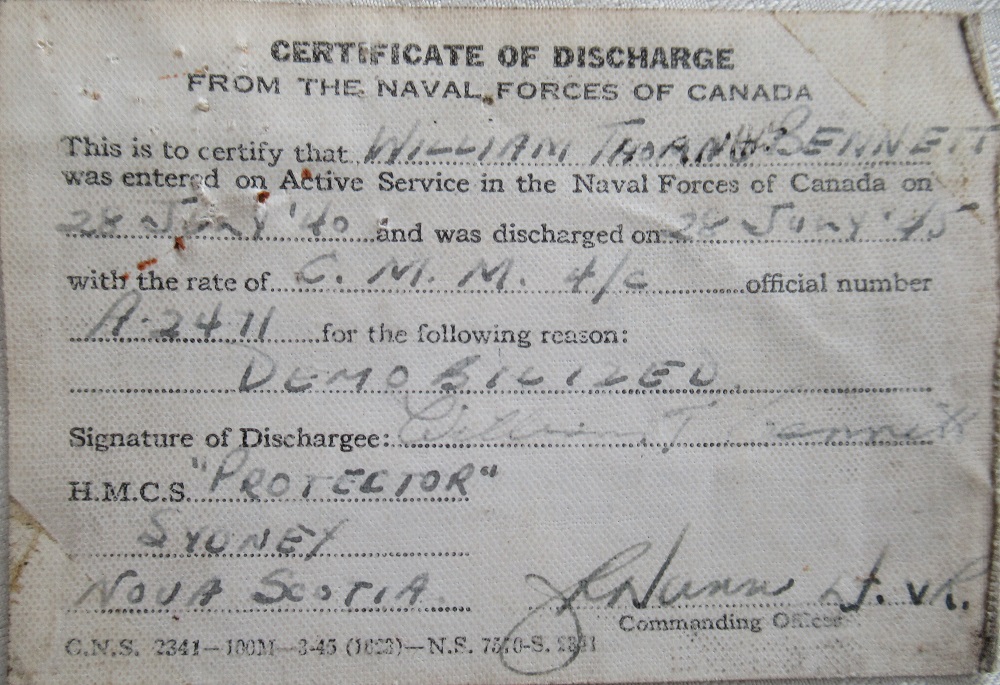 CERTIFICATE OF DISCHARGE
FROM THE NAVAL FORCES OF CANADA
This is to certify that WILLIAM BENNETT
was entered on Active Service in the Naval Forces of Canada on
28 '40 and was discharged on 28 '45
with the rate of C. M. M. 4/c official number
A-2471 for the following reason:
DEMOBILIZED.
Signature of Dischargee: William T. Bennett
H.M.C.S. "PROTECTOR"
SYDNEY
NOVA SCOTIA.
Lt. VR.
Commanding Officer
C.N.S. 2341—100M—3-45 (1623)—N.S. 7540-S. 2341